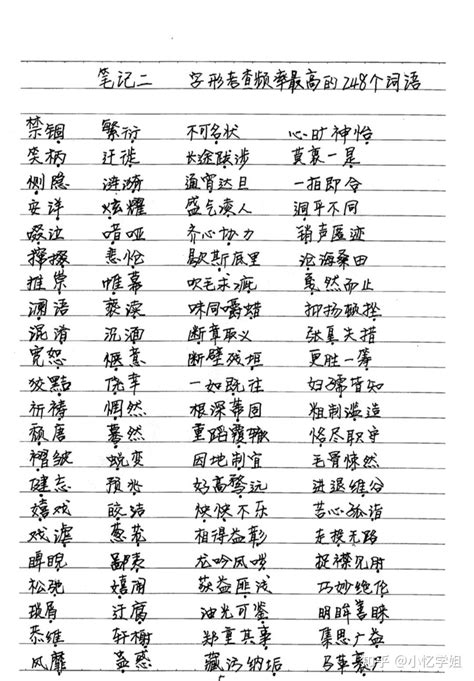 笔记二 字形考查频率最高的248个词语
禁锢 繁衍 不可名状 心旷神怡
笑柄 迁徙 长途跋涉 莫衷一是
恻隐 涟漪 通宵达旦 一拍即合
安详 炫耀 盛气凌人 迥乎不同
啜泣 喑哑 齐心协力 销声匿迹
撺掇 歇斯底里 沧海桑田
推崇 帷幕 吹毛求疵 戛然而止
谰语 亵渎 味同嚼蜡 抑扬顿挫
混淆 沉湎 断章取义 张皇失措
宽恕 惬意 断壁残垣 更胜一筹
狡黠 一如既往 妇孺皆知
祈祷 惘然 根深蒂固 粗制滥造
颓唐 蓦然 重蹈覆辙 恪尽职守
褶皱 蜕变 因地制宜 毛骨悚然
预兆 好高骛远 进退维谷
嬉戏 皎洁 怏怏不乐 苦心孤诣
戏谑 葱茏 相得益彰 走投无路
睥睨 鄙陋 龙吟凤哕 捉襟见肘
松弛 获益匪浅 巧妙绝伦
琐屑 迂腐 油光可鉴 明眸善睐
恭维 轩榭 郑重其事 集思广益
风靡 蛊惑 藏污纳垢 马革裹尸
知乎 @小忆学姐